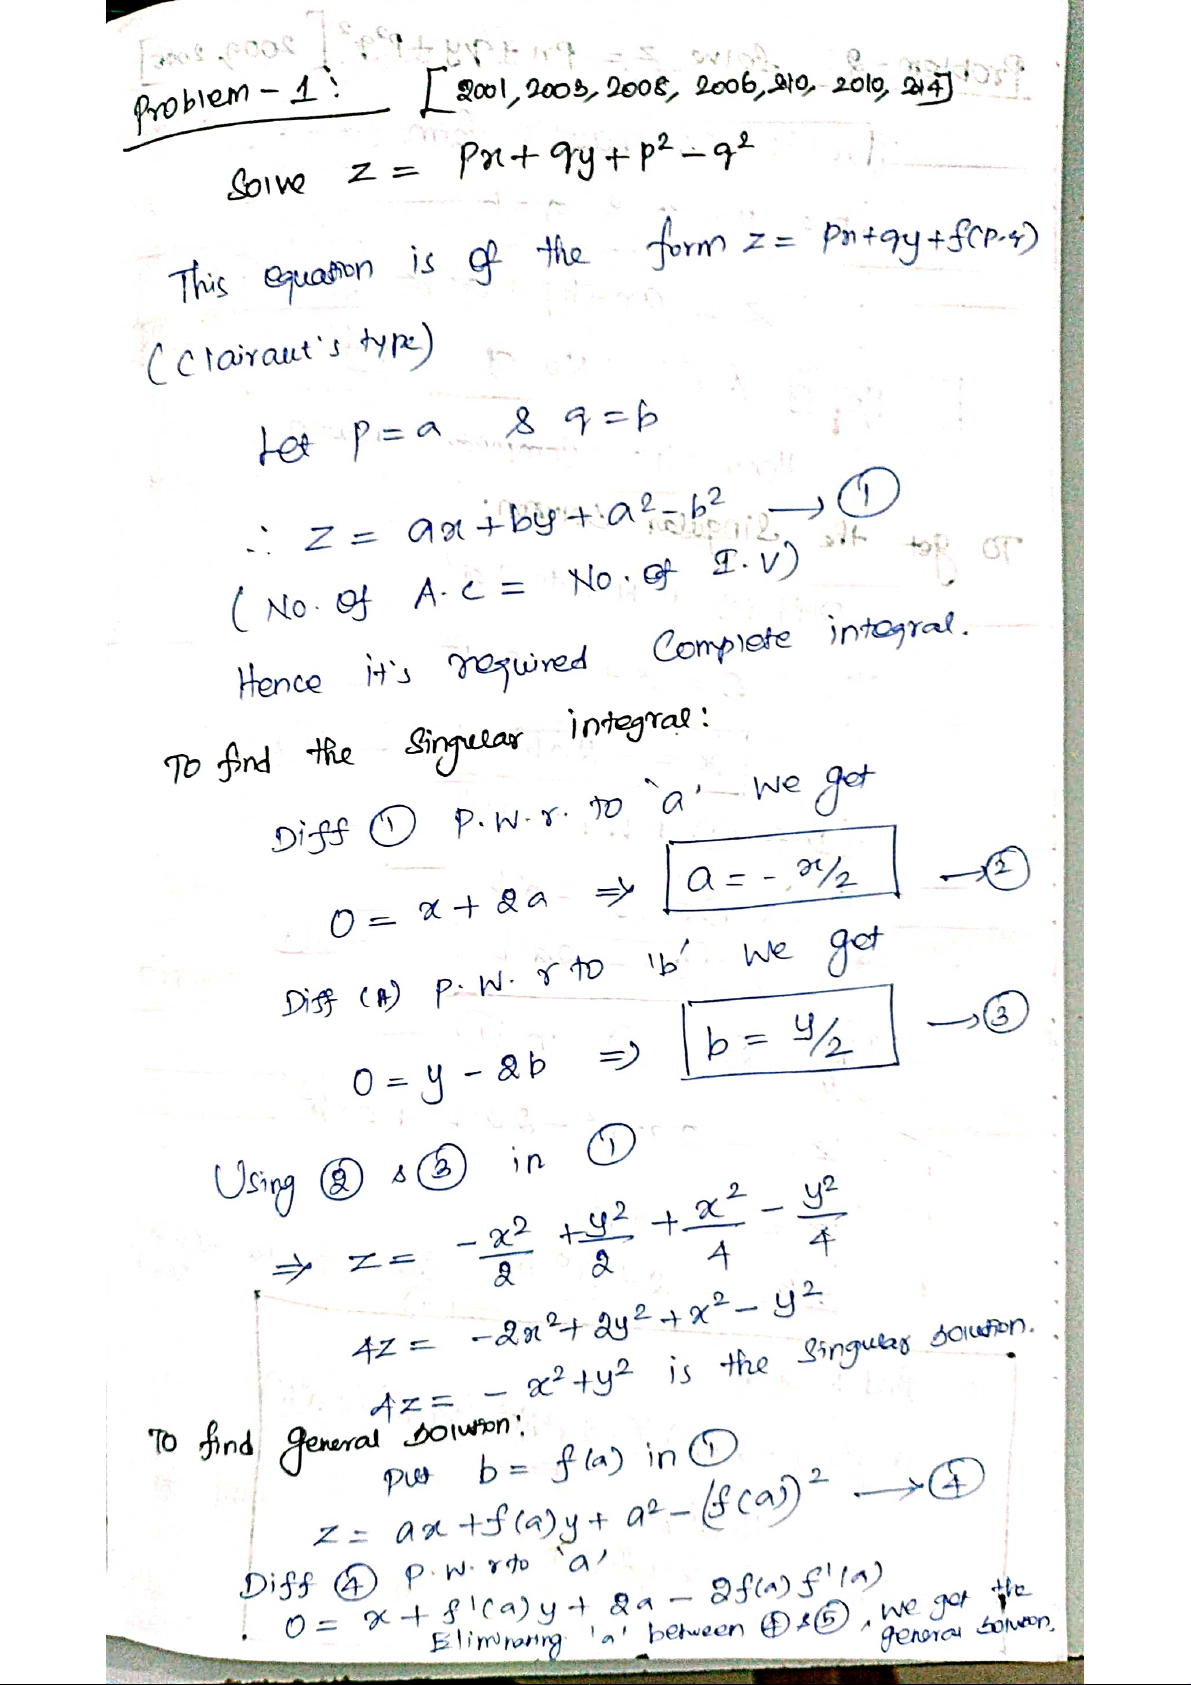 Problem - 1: [2001, 2003, 2008, 2006, 210, 2010, 214]
Solve z = px + qy + p² - q²
This equation is of the form z = px + qy + f(p.q)
(Clairaut's type)
Let p = a & q = b
∴ z = ax + by + a² - b² → ①
(No. of A.C = No. of I.V)
Hence it's required Complete integral.
To find the Singular integral:
Diff ① p.w.r. to 'a' we get
0 = x + 2a ⇒ a = - x/2 → ②
Diff (A) p.w.r to 'b' we get
0 = y - 2b ⇒ b = y/2 → ③
Using ② & ③ in ①
⇒ z = -x²/2 + y²/2 + x²/4 - y²/4
4z = -2x² + 2y² + x² - y²
4z = - x² + y² is the Singular solution.
To find general solution:
put b = f(a) in ①
z = ax + f(a)y + a² - (f(a))² → ④
Diff ④ p.w.r to 'a'
0 = x + f'(a)y + 2a - 2f(a) f'(a)
Eliminating 'a' between ④ & ⑤, we get the general solution.